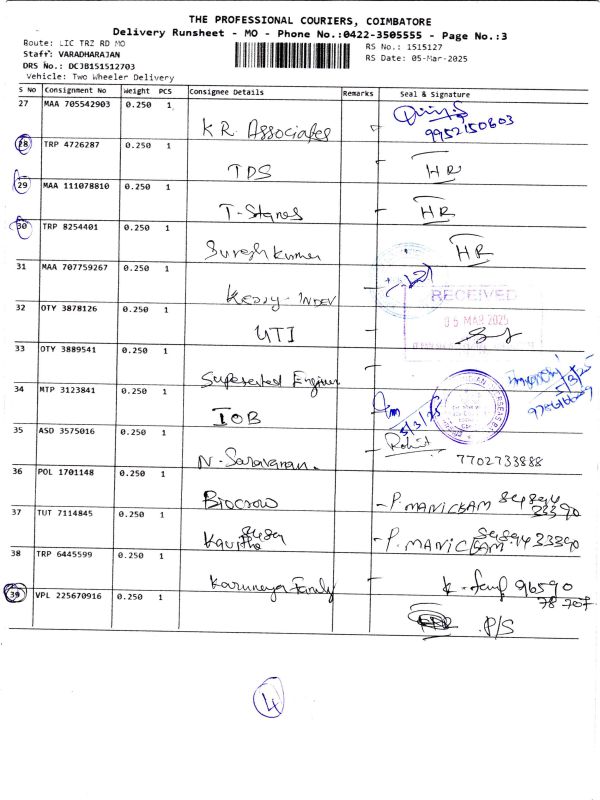 THE PROFESSIONAL COURIERS, COIMBATORE
Delivery Runsheet - MO - Phone No.:0422-3505555 - Page No.:3
Route: LIC TRZ RD MO
RS No.: 1515127
Staff: VARADHARAJAN
RS Date: 05-Mar-2025
DRS No.: DCJB151512703
Vehicle: Two Wheeler Delivery
S No Consignment No Weight PCS Consignee Details Remarks Seal & Signature
27 MAA 705542903 0.250 1
KR. Associates 9952150603
28 TRP 4726287 0.250 1
TDS HR
29 MAA 111078810 0.250 1
T-Stanes HR
30 TRP 8254401 0.250 1
Suresh Kumar HR
31 MAA 707759267 0.250 1
INDEV RECEIVED
32 OTY 3878126 0.250 1
05 MAR 2025
UTI
33 OTY 3889541 0.250 1
34 MTP 3123841 0.250 1
IOB 5/3/25
35 ASD 3575016 0.250 1
Rohit
N. Saravanan. 7702733888
36 POL 1701148 0.250 1
P. MANICKAM 33390
37 TUT 7114845 0.250 1
P. MANICKAM 33390
38 TRP 6445599 0.250 1
Karunaya Family 96590
39 VPL 225670916 0.250 1
78707
P/S
4